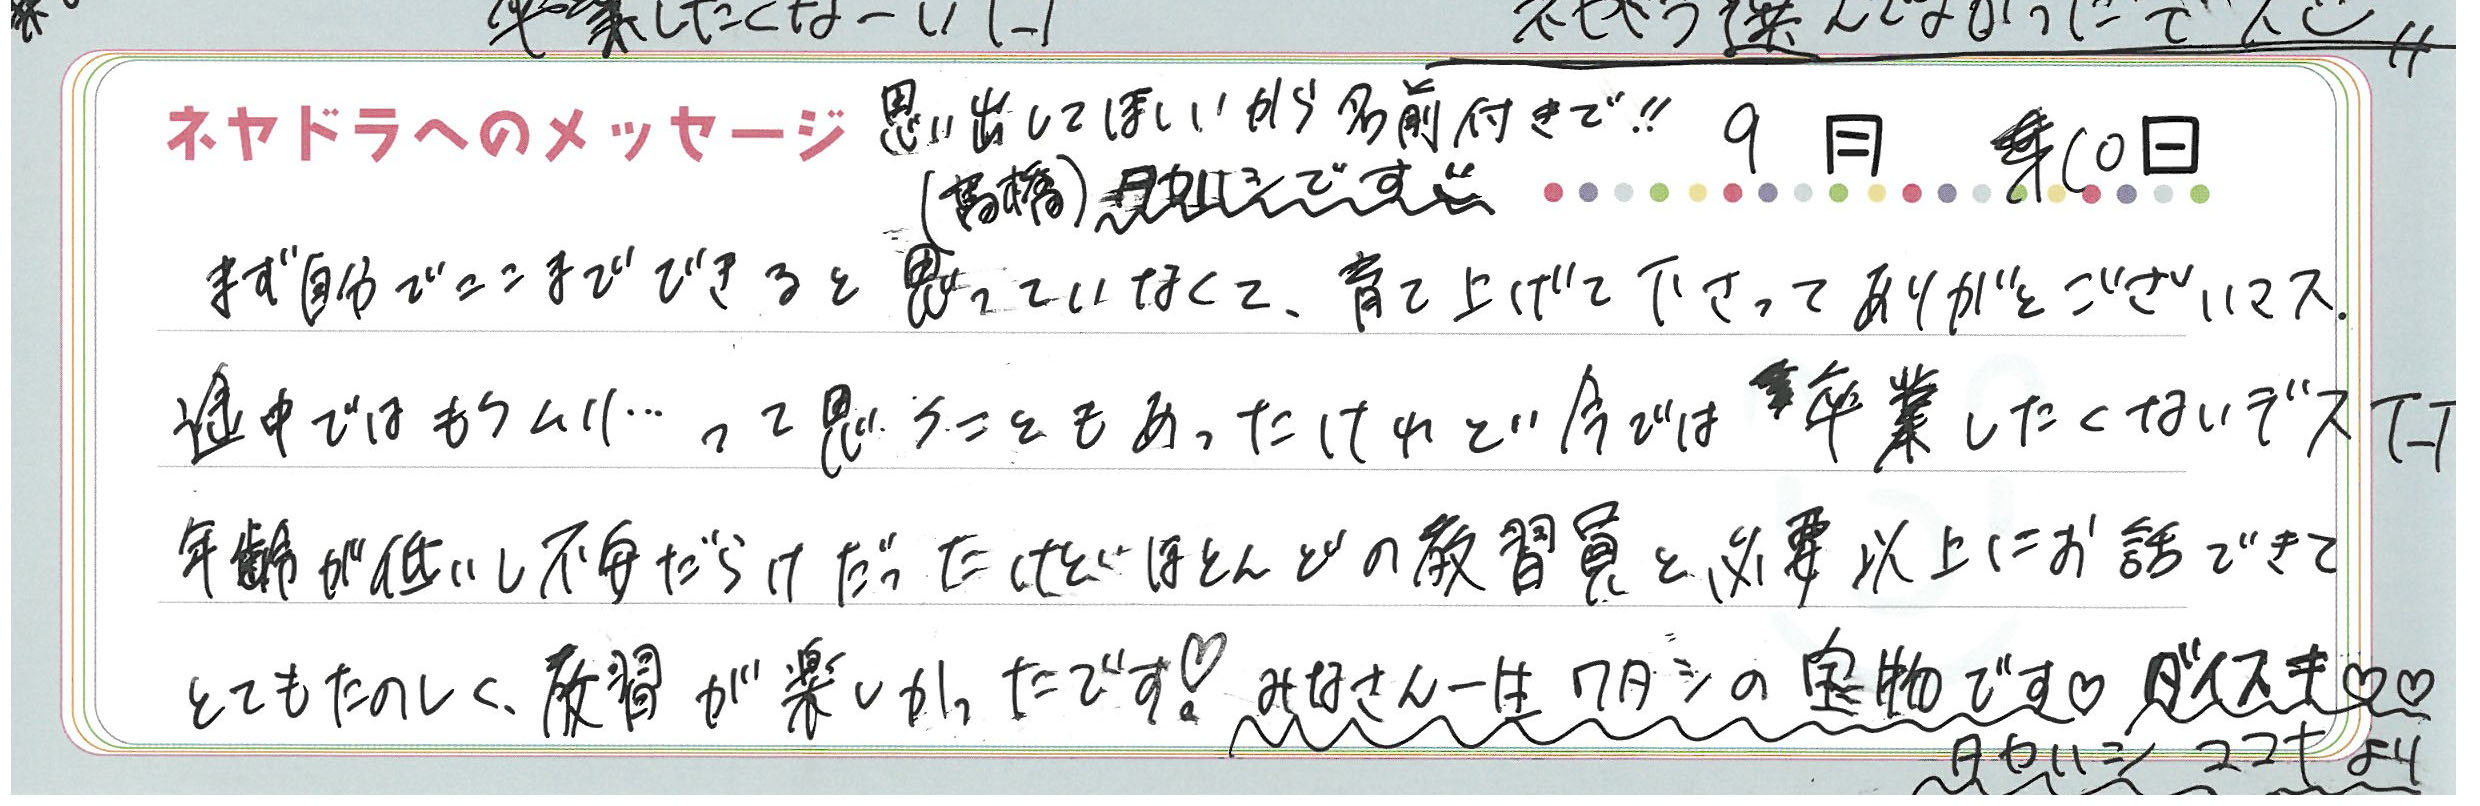 卒業したくなーい T_T
ネヤドラ選んでよかったでス
ネヤドラへのメッセージ 思い出してほしいから名前付きで!! 9月10日
(高橋) です
まず自分でここまでできると思っていなくて、育て上げて下さってありがとございマス.
途中ではもうムリ…って思うこともあったけれど今では卒業したくないデスT_T
年齢が低いし不安だらけだったけどほとんどの教習員と必要以上にお話できて
とてもたのしく、教習が楽しかったです!♡ みなさん一生ワタシの宝物です♡ ダイスキ♡♡
ココナより